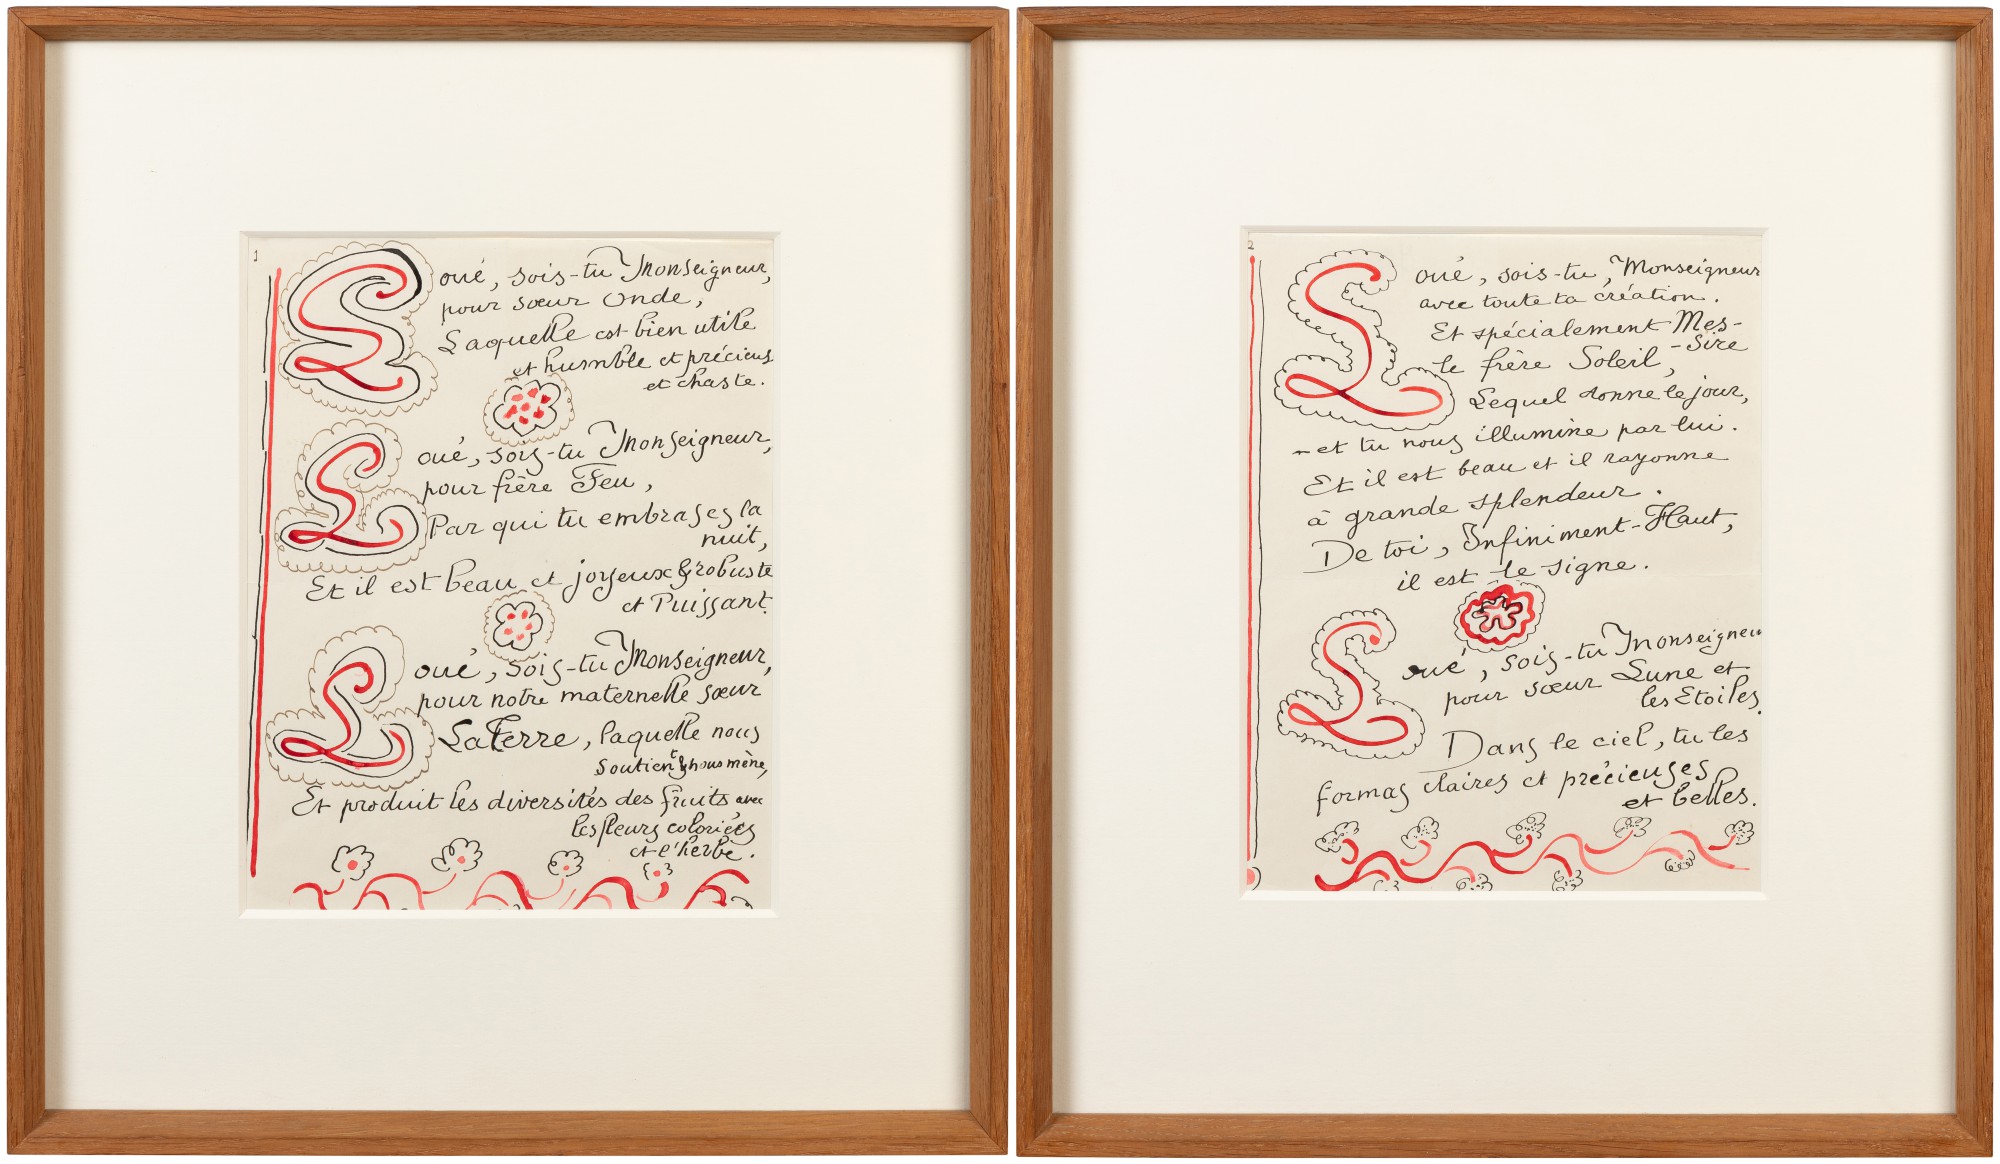 1
Loué, sois-tu Monseigneur,
pour sœur Onde,
Laquelle est bien utile
et humble et précieus
et chaste.
Loué, sois-tu Monseigneur,
pour frère Feu,
Par qui tu embrases la
nuit,
Et il est beau et joyeux & robuste
et Puissant.
Loué, sois-tu Monseigneur,
pour notre maternelle sœur
La Terre, laquelle nous
soutient & nous mène,
Et produit les diversités des fruits avec
les fleurs coloriées
et l'herbe.
2
Loué, sois-tu, Monseigneur
avec toute ta création.
Et spécialement Mes-
-sire
le frère Soleil,
Lequel donne le jour,
et tu nous illumine par lui.
Et il est beau et il rayonne
à grande splendeur.
De toi, Infiniment-Haut,
il est le signe.
Loué, sois-tu Monseigneu
pour sœur Lune et
les Etoiles.
Dans le ciel, tu les
formas claires et précieuses
et belles.